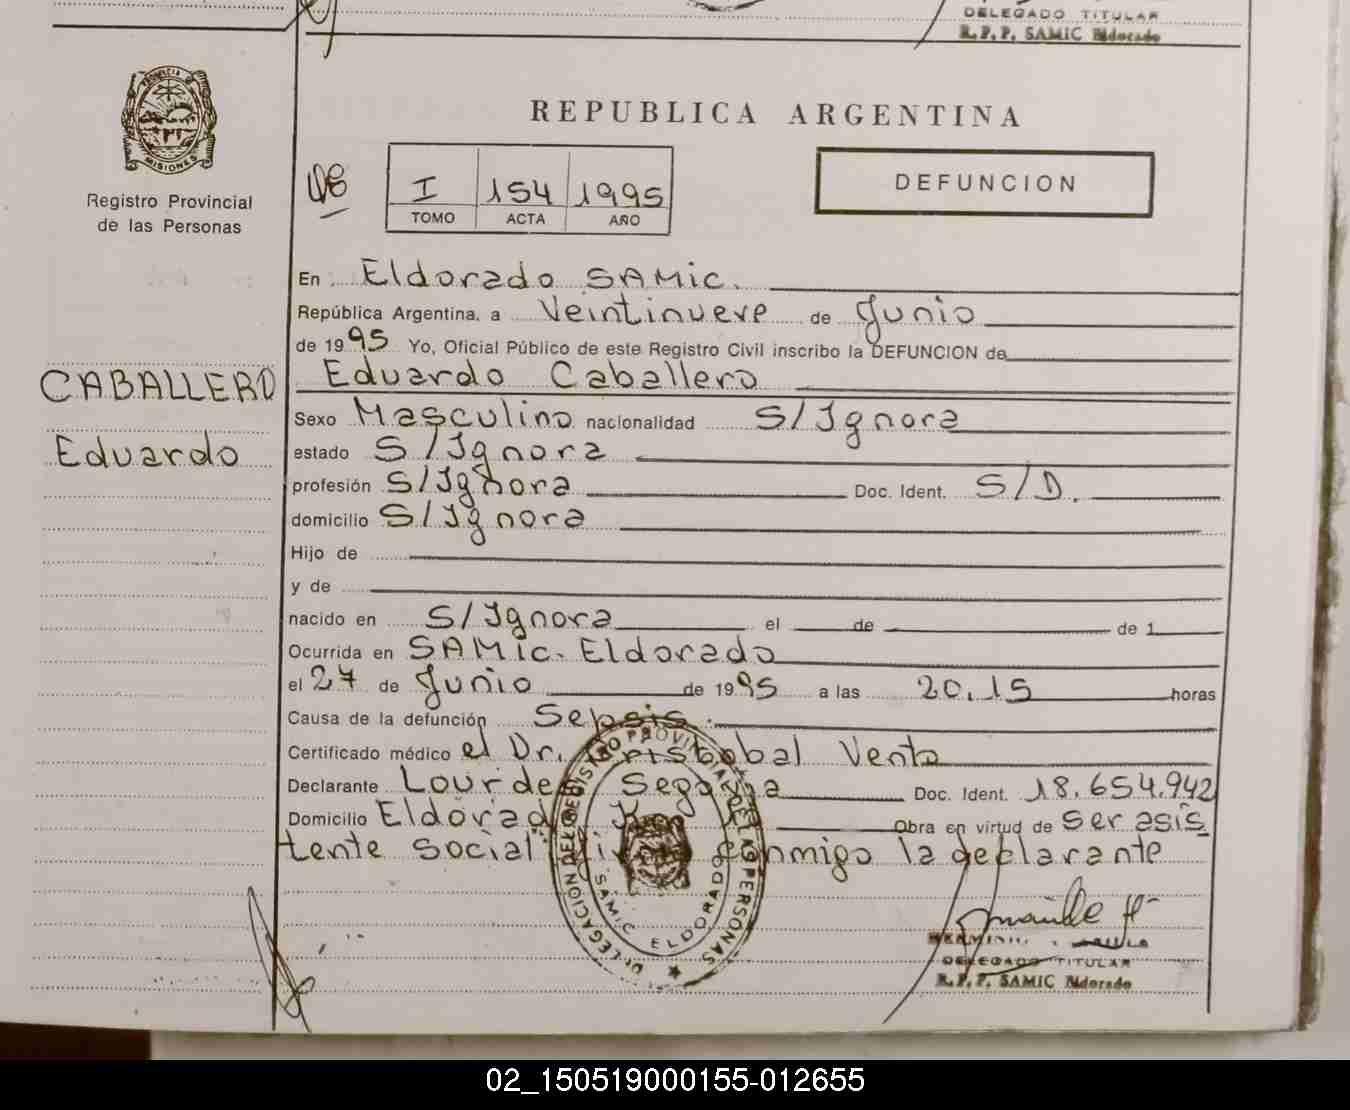 DELEGADO TITULAR
R.P.P. SAMIC Eldorado
PROVINCIA DE
MISIONES
Registro Provincial
de las Personas
REPUBLICA ARGENTINA
I 154 1995
TOMO ACTA AÑO
DEFUNCION
En Eldorado SAMIC.
República Argentina, a Veintinueve de Junio
de 1995 Yo, Oficial Público de este Registro Civil inscribo la DEFUNCION de
CABALLERO
Eduardo Caballero
Sexo Masculino nacionalidad S/Ignora
Eduardo
estado S/Ignora
profesión S/Ignora Doc. Ident. S/D.
domicilio S/Ignora
Hijo de
y de
nacido en S/Ignora el de de 1
Ocurrida en SAMIC. Eldorado
el 27 de Junio de 1995 a las 20.15 horas
Causa de la defunción Sepsis.
Certificado médico el Dr. Cristobal Vento
Declarante Lourdes Doc. Ident. 18.654.942
Domicilio Eldorado Obra en virtud de ser asis
tente social conmigo la declarante
DELEGACION DEL REGISTRO PROVINCIAL DE LAS PERSONAS
SAMIC ELDORADO
DELEGADO TITULAR
R.P.P. SAMIC Eldorado
02_150519000155-012655